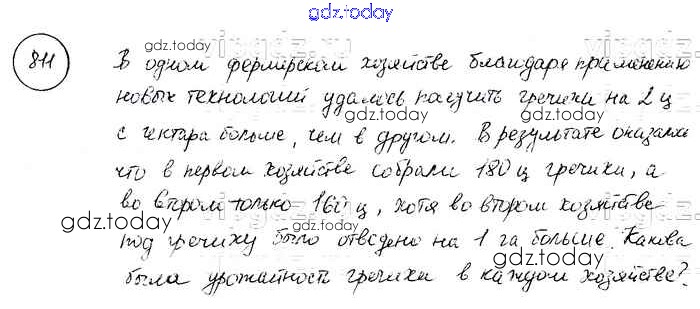 gdz.today
811
В одном фермерском хозяйстве благодаря применению
новых технологий удалось получить гречихи на 2 ц
с гектара больше, чем в другом. В результате оказалось
что в первом хозяйстве собрали 180 ц гречихи, а
во втором только 160 ц, хотя во втором хозяйстве
под гречиху было отведено на 1 га больше. Какова
была урожайность гречихи в каждом хозяйстве?
gdz.today
gdz.today
gdz.today
gdz.today
gdz.today
gdz.today